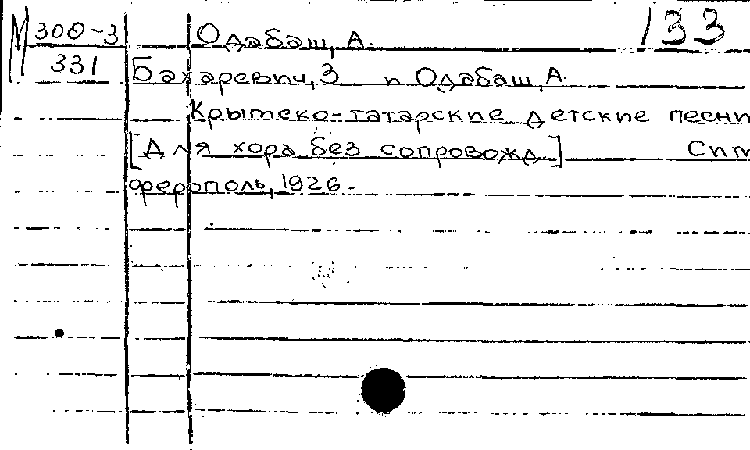 М 300-3 Одабаш, А. 133
331 Бахаревич, З и Одабаш, А.
Крымско-татарские детские песни
[Для хора без сопровожд.] Сим
ферополь, 1926.